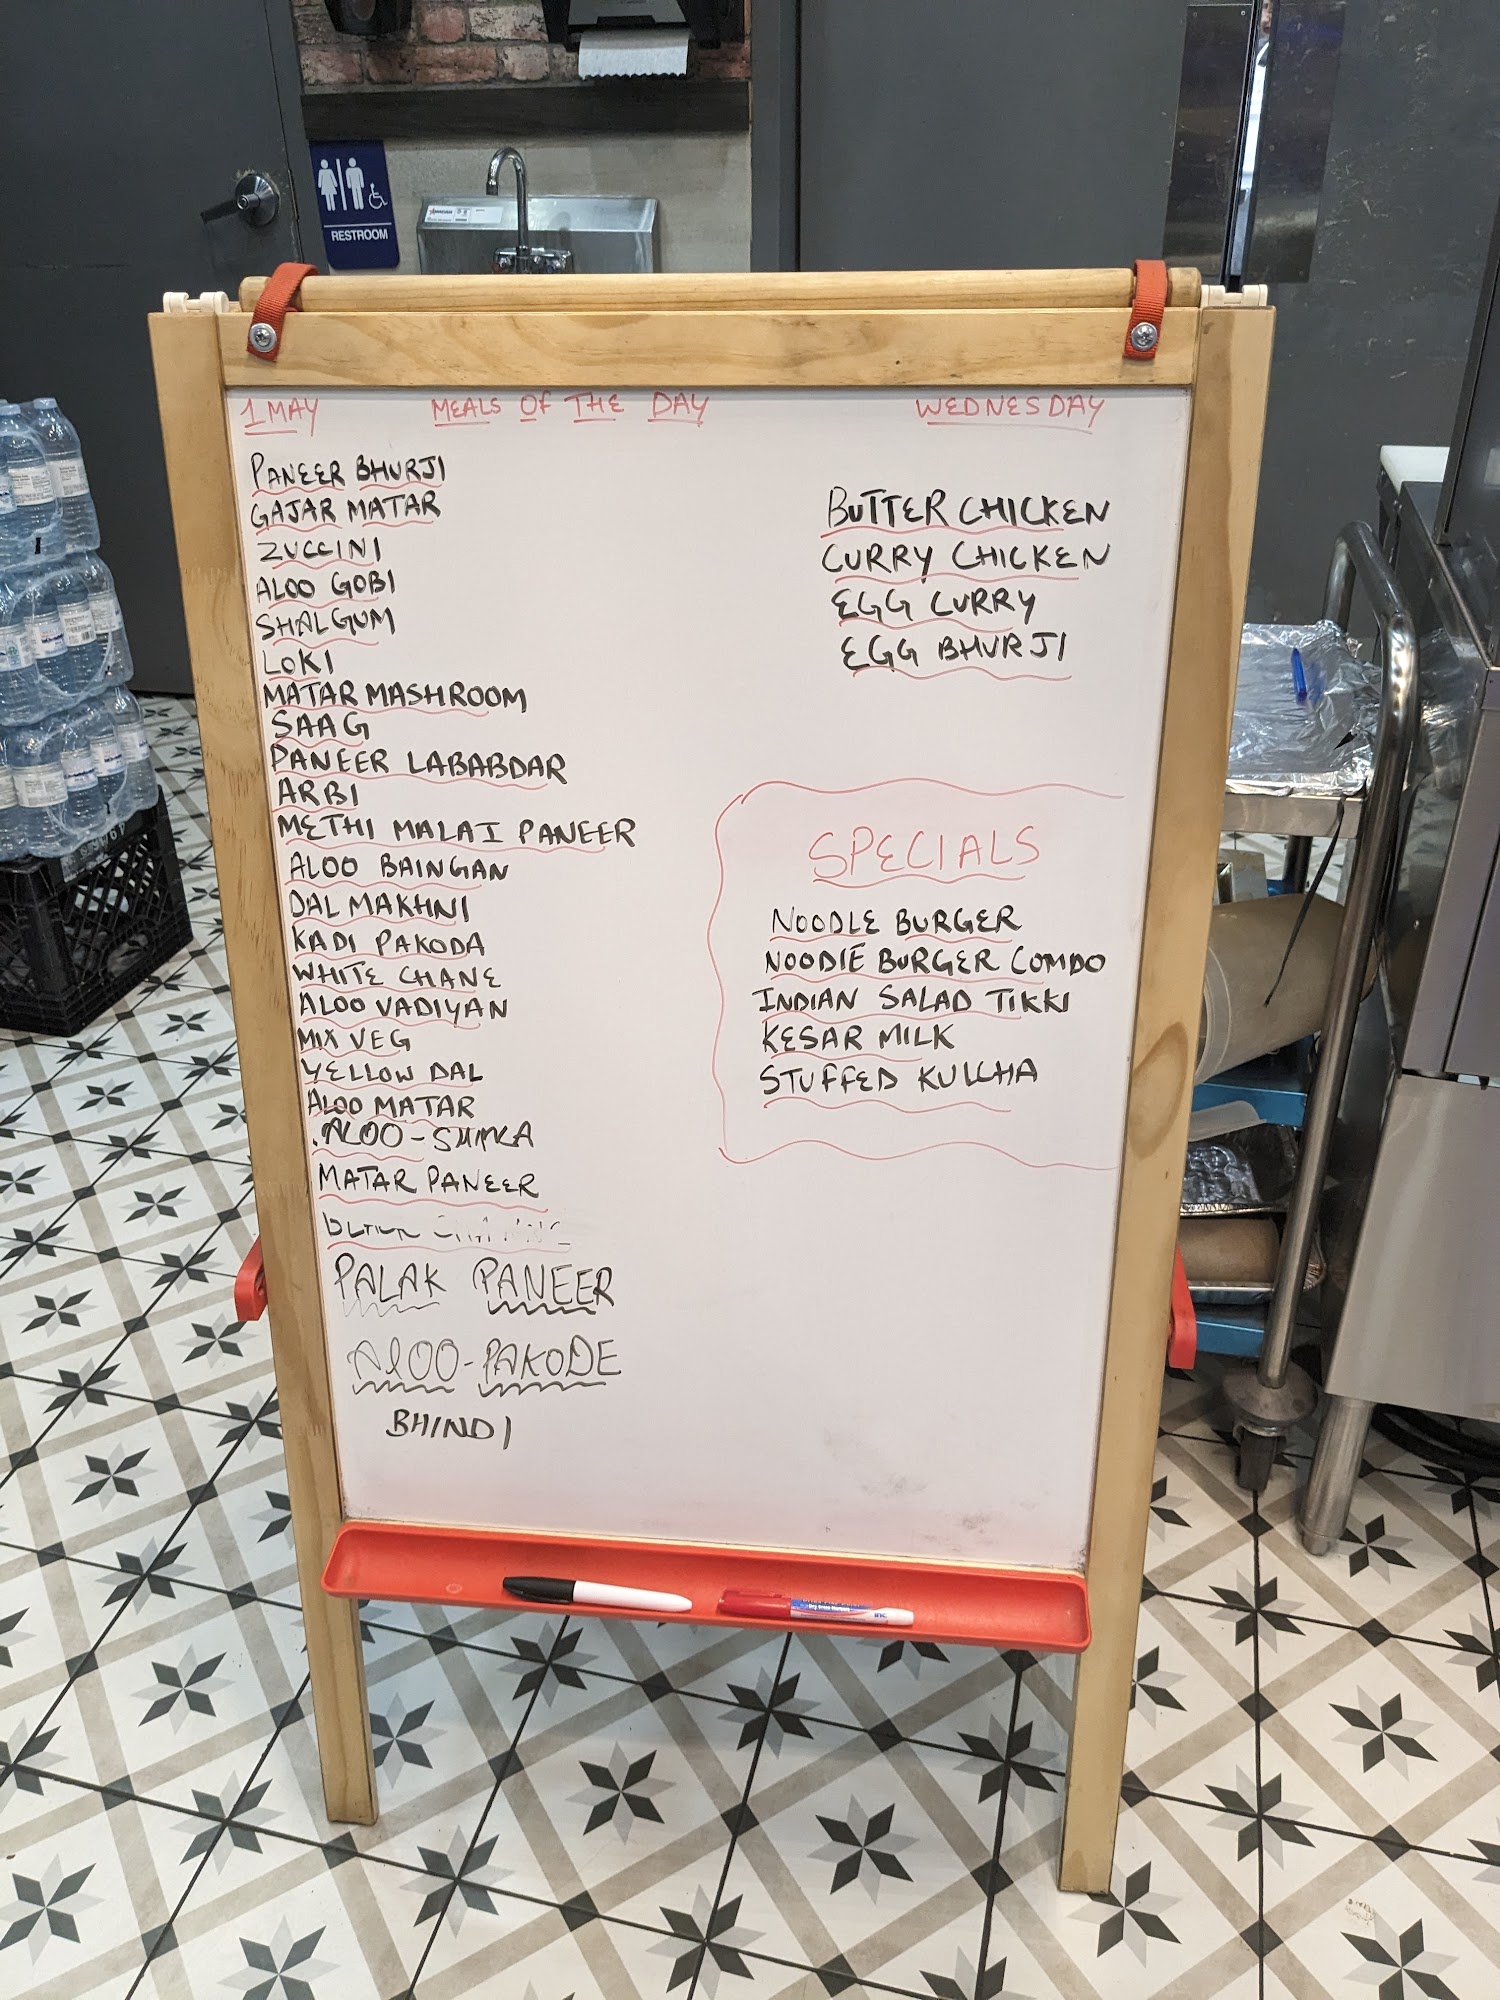 RESTROOM
1 MAY MEALS OF THE DAY WEDNESDAY
PANEER BHURJI
GAJAR MATAR
ZUCCINI
ALOO GOBI
SHALGUM
LOKI
MATAR MASHROOM
SAAG
PANEER LABABDAR
ARBI
METHI MALAI PANEER
ALOO BAINGAN
DAL MAKHNI
KADI PAKODA
WHITE CHANE
ALOO VADIYAN
MIX VEG
YELLOW DAL
ALOO MATAR
.ALOO-
MATAR PANEER
PALAK PANEER
ALOO-PAKODE
BHINDI
BUTTER CHICKEN
CURRY CHICKEN
EGG CURRY
EGG BHURJI
SPECIALS
NOODLE BURGER
NOODLE BURGER COMBO
INDIAN SALAD TIKKI
KESAR MILK
STUFFED KULCHA